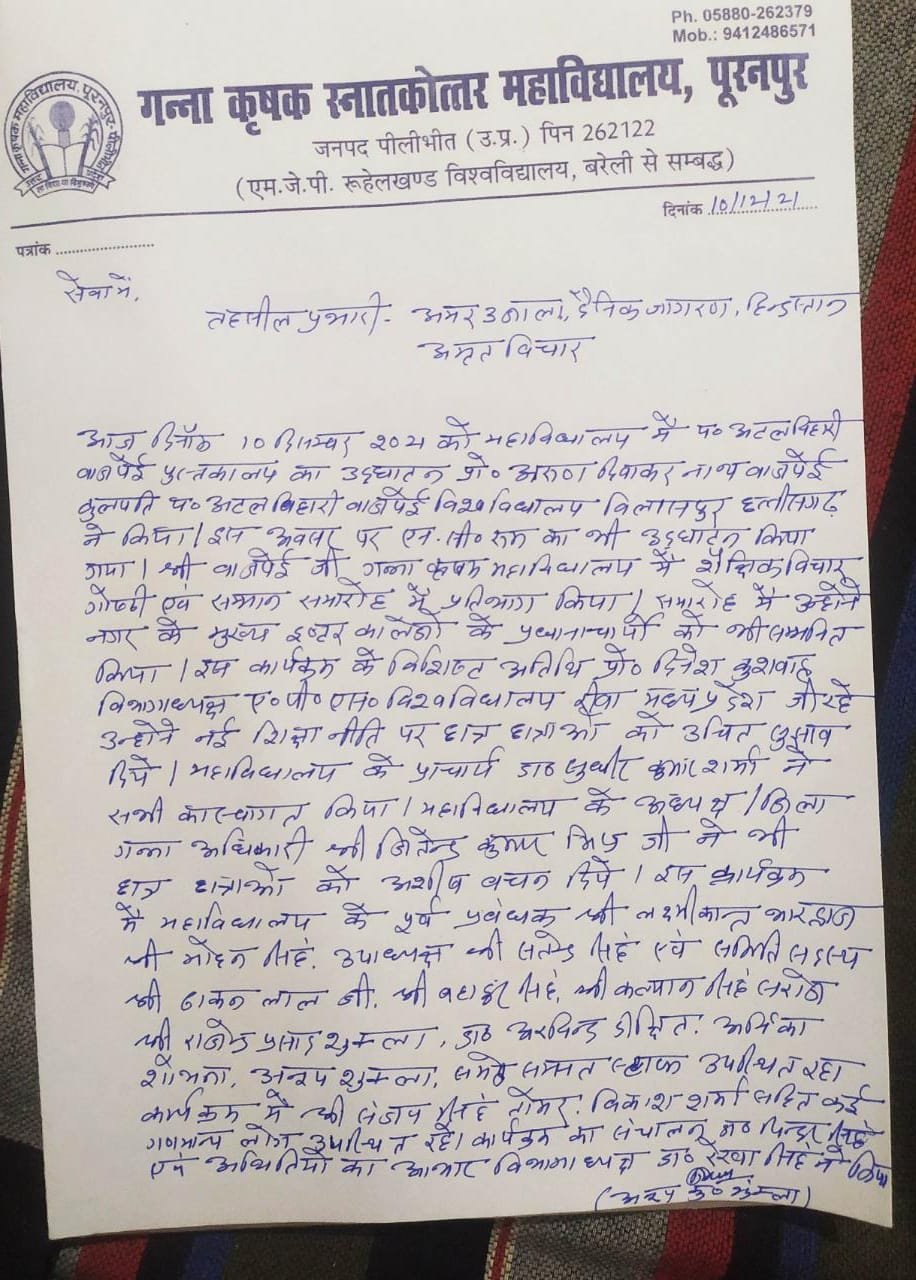 Ph. 05880-262379
Mob.: 9412486571
गन्ना कृषक स्नातकोत्तर महाविद्यालय, पूरनपुर
जनपद पीलीभीत (उ.प्र.) पिन 262122
(एम.जे.पी. रूहेलखण्ड विश्वविद्यालय, बरेली से सम्बद्ध)
दिनांक 10/12/21
पत्रांक
सेवा में,
तहसील प्रभारी - अमर उजाला, दैनिक जागरण, हिन्दुस्तान
अमृत विचार
आज दिनाँक 10 दिसम्बर 2021 को महाविद्यालय में पं० अटल बिहारी
वाजपेई पुस्तकालय का उद्घाटन प्रो० अरुण दिवाकर नाथ वाजपेई
कुलपति पं० अटल बिहारी वाजपेई विश्वविद्यालय विलासपुर छत्तीसगढ़
ने किया। इस अवसर पर एन.सी० रूम का भी उद्घाटन किया
गया। श्री वाजपेई जी गन्ना कृषक महाविद्यालय में शैक्षिक विचार
गोष्ठी एवं सम्मान समारोह में प्रतिभाग किया। समारोह में उन्होंने
नगर के मुख्य इण्टर कालेजो के प्रधानाचार्यो को भी सम्मनित
किया। इस कार्यक्रम के विशिष्ट अतिथि प्रो० दिनेश कुशवाह
विभागाध्यक्ष ए०पी०एस० विश्वविद्यालय रीवा मध्यप्रदेश जी रहे
उन्होंने नई शिक्षा नीति पर छात्र छात्राओं को उचित सुझाव
दिये। महाविद्यालय के प्राचार्य डा० सुधीर कुमार शर्मा ने
सभी का स्वागत किया। महाविद्यालय के अध्यक्ष / जिला
गन्ना अधिकारी श्री जितेन्द्र कुमार मिश्र जी ने भी
छात्र छात्राओं को अशीष वचन दिये। इस कार्यक्रम
में महाविद्यालय के पूर्व प्रबंधक श्री लक्ष्मीकान्त भारद्वाज
श्री मोहन सिंह, उपाध्यक्ष श्री सतेन्द्र सिंह एवं समिति सदस्य
श्री ढाकन लाल जी, श्री बहादुर सिंह, श्री कल्यान सिंह
श्री राजेन्द्र प्रसाद शुक्ला, डा० अरविन्द दीक्षित,
शोभना, शुक्ला, समेत समस्त स्टाफ उपस्थित रहा
कार्यक्रम में श्री संजय सिंह तोमर, विकाश शर्मा सहित कई
गणमान्य लोग उपस्थित रहे। कार्यक्रम का संचालन सिंह
एवं अथितियों का आभार विभागाध्यक्ष डा० रेखा सिंह ने किया
कु० शुक्ला)